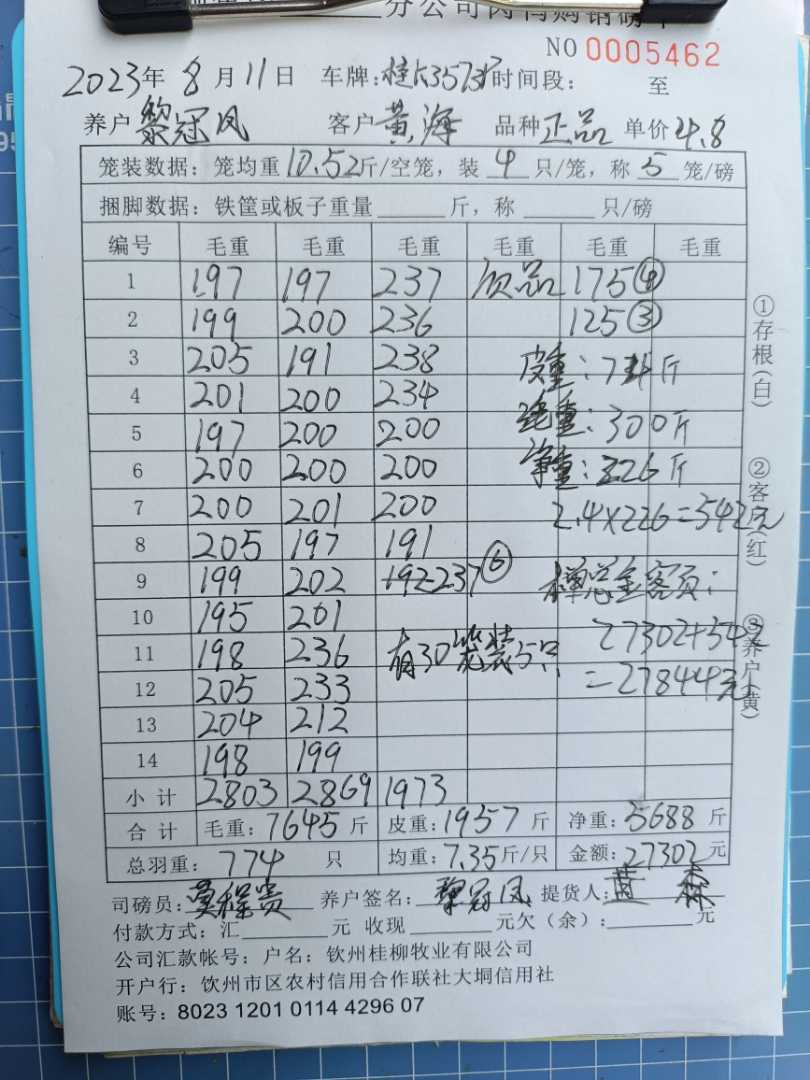 分公司肉鸭购销磅单
NO 0005462
2023年 8月11日 车牌: 时间段: 至
养户 黎冠凤 客户 黄海 品种 正品 单价 4.8
笼装数据: 笼均重 10.52斤/空笼, 装 4 只/笼, 称 5 笼/磅
捆脚数据: 铁筐或板子重量 斤, 称 只/磅
编号 毛重 毛重 毛重 毛重 毛重 毛重
1 197 197 237 次品 175④
2 199 200 236 125③
3 205 191 238 皮重: 74斤
4 201 200 234 毛重: 300斤
5 197 200 200
6 200 200 200 净重: 226斤
7 200 201 200 2.4×226=542元
8 205 197 191
9 199 202 192-237⑥
10 195 201 27302+542
11 198 236 有30笼装5只
12 205 233 =27844元
13 204 212
14 198 199
小计 2803 2869 1973
合计 毛重: 7645 斤 皮重: 1957 斤 净重: 5688 斤
总羽重: 774 只 均重: 7.35斤/只 金额: 27302 元
司磅员: 养户签名: 黎冠凤 提货人:
付款方式: 汇 元 收现 元欠(余): 元
公司汇款帐号: 户名: 钦州桂柳牧业有限公司
开户行: 钦州市区农村信用合作联社大垌信用社
账号: 8023 1201 0114 4296 07
①存根(白)
②客户(红)
③养户(黄)